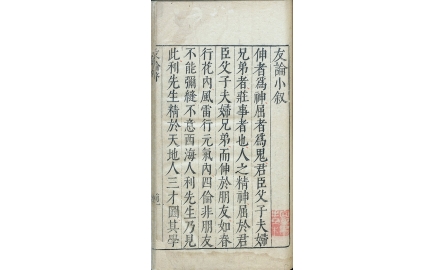 友論小叙
伸者爲神屈者爲鬼君臣父子夫婦
兄弟者莊事者也人之精神屈於君
臣父子夫婦兄弟而伸於朋友如春
行花內風雷行元氣內四倫非朋友
不能彌縫不意西海人利先生乃見
此利先生精於天地人三才圖其學